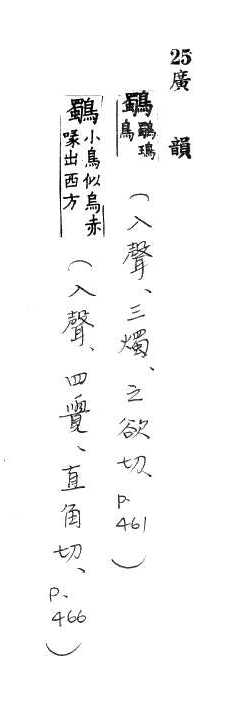 25廣韻
鸀鸀鳿鳥(入聲、三燭、之欲切、p.461)
鸀小鳥似烏赤喙出西方(入聲、四覺、直角切、p.466)